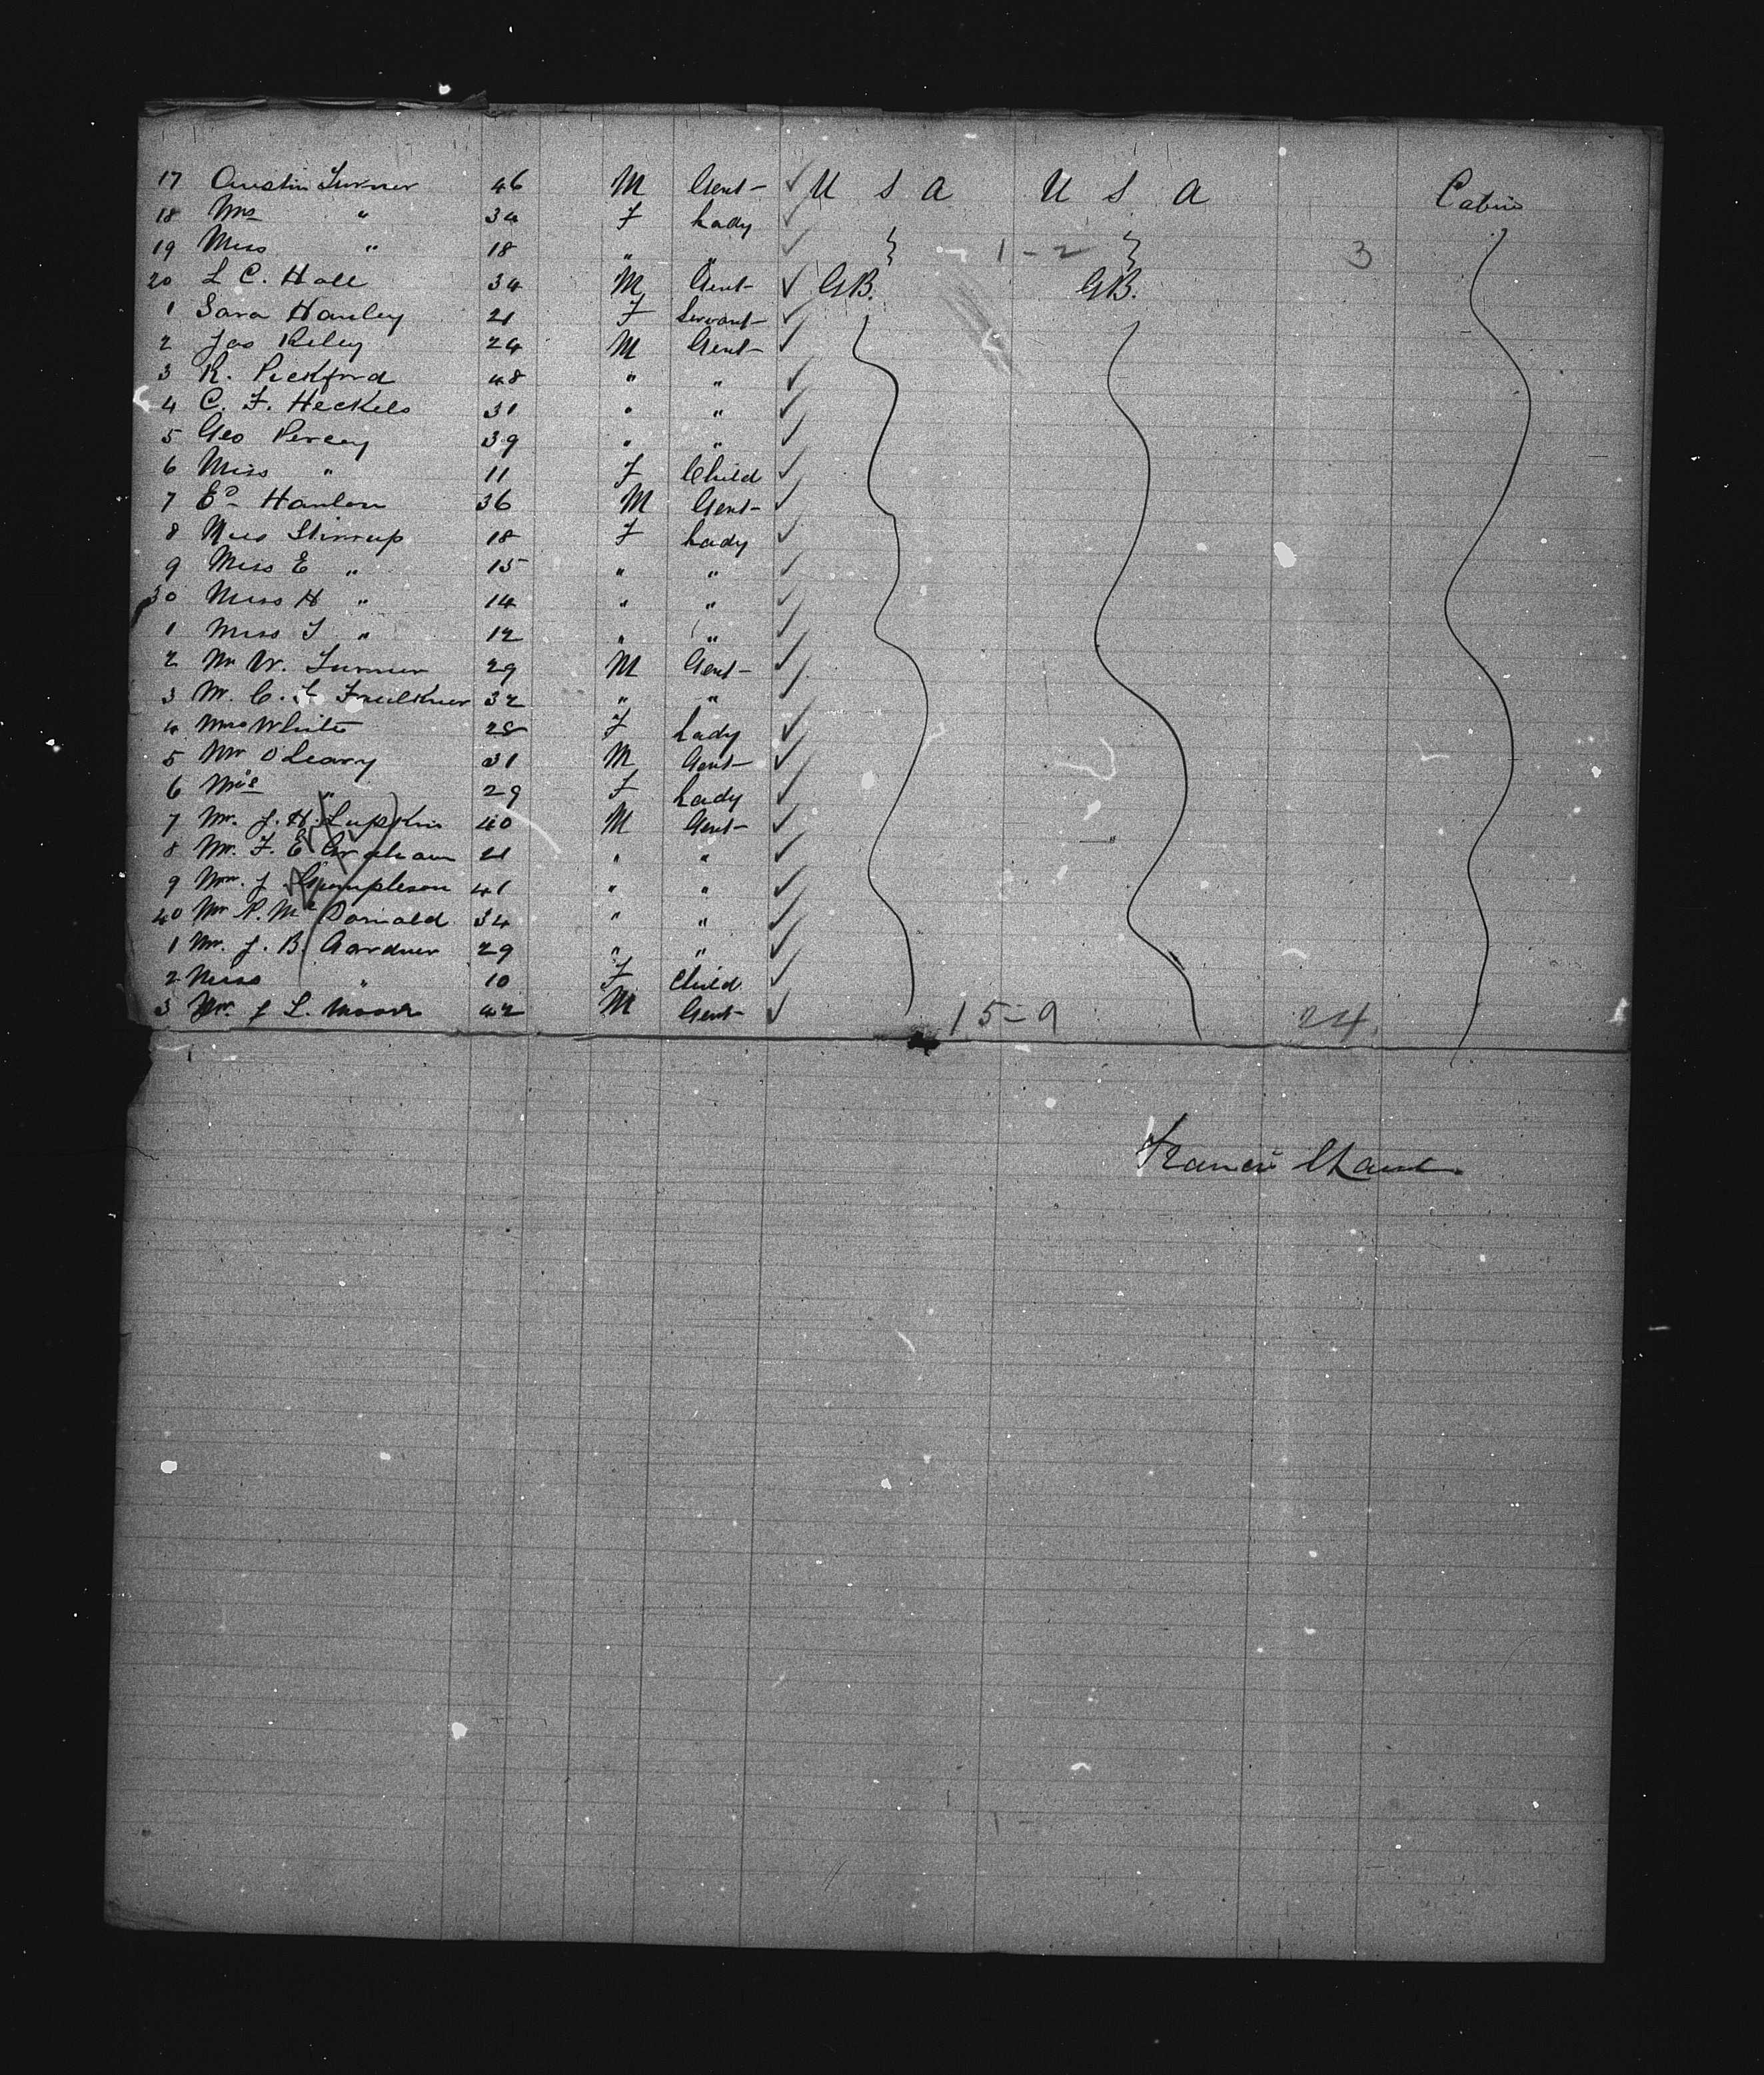 17 Austin Turner 46 M Gent - ✓ U S A U S A Cabin
18 Mrs " 34 F Lady ✓
19 Miss " 18 " " ✓ 1 - 2 3
20 L C. Hall 34 M Gent - ✓ GB. GB.
1 Sara Hanley 21 F Servant - ✓
2 Jas Riley 24 M Gent - ✓
3 R. Pickford 48 " " ✓
4 C. F. Heckels 31 " " ✓
5 Geo Percey 39 " " ✓
6 Miss " 11 F Child ✓
7 Ed Hanlon 36 M Gent - ✓
8 Miss Stirrup 18 F Lady ✓
9 Miss E " 15 " " ✓
30 Miss H " 14 " " ✓
1 Miss J " 12 " " ✓
2 Mr W. Turner 29 M Gent - ✓
3 Mr. C. Faulkner 32 " " ✓
4 Mrs White 28 F Lady ✓
5 Mr O'Leary 31 M Gent - ✓
6 Mrs " 29 F Lady ✓
7 Mr. J. H. Lupkin 40 M Gent - ✓
8 Mr. F. E Graham 21 " " ✓
9 Mr. J 41 " " ✓
40 Mr P. Mc Donald 34 " " ✓
1 Mr. J. B. Gardner 29 " " ✓
2 Miss " 10 F Child ✓
3 Mr. J L. Moore 42 M Gent - ✓ 15 - 9 24
Francis